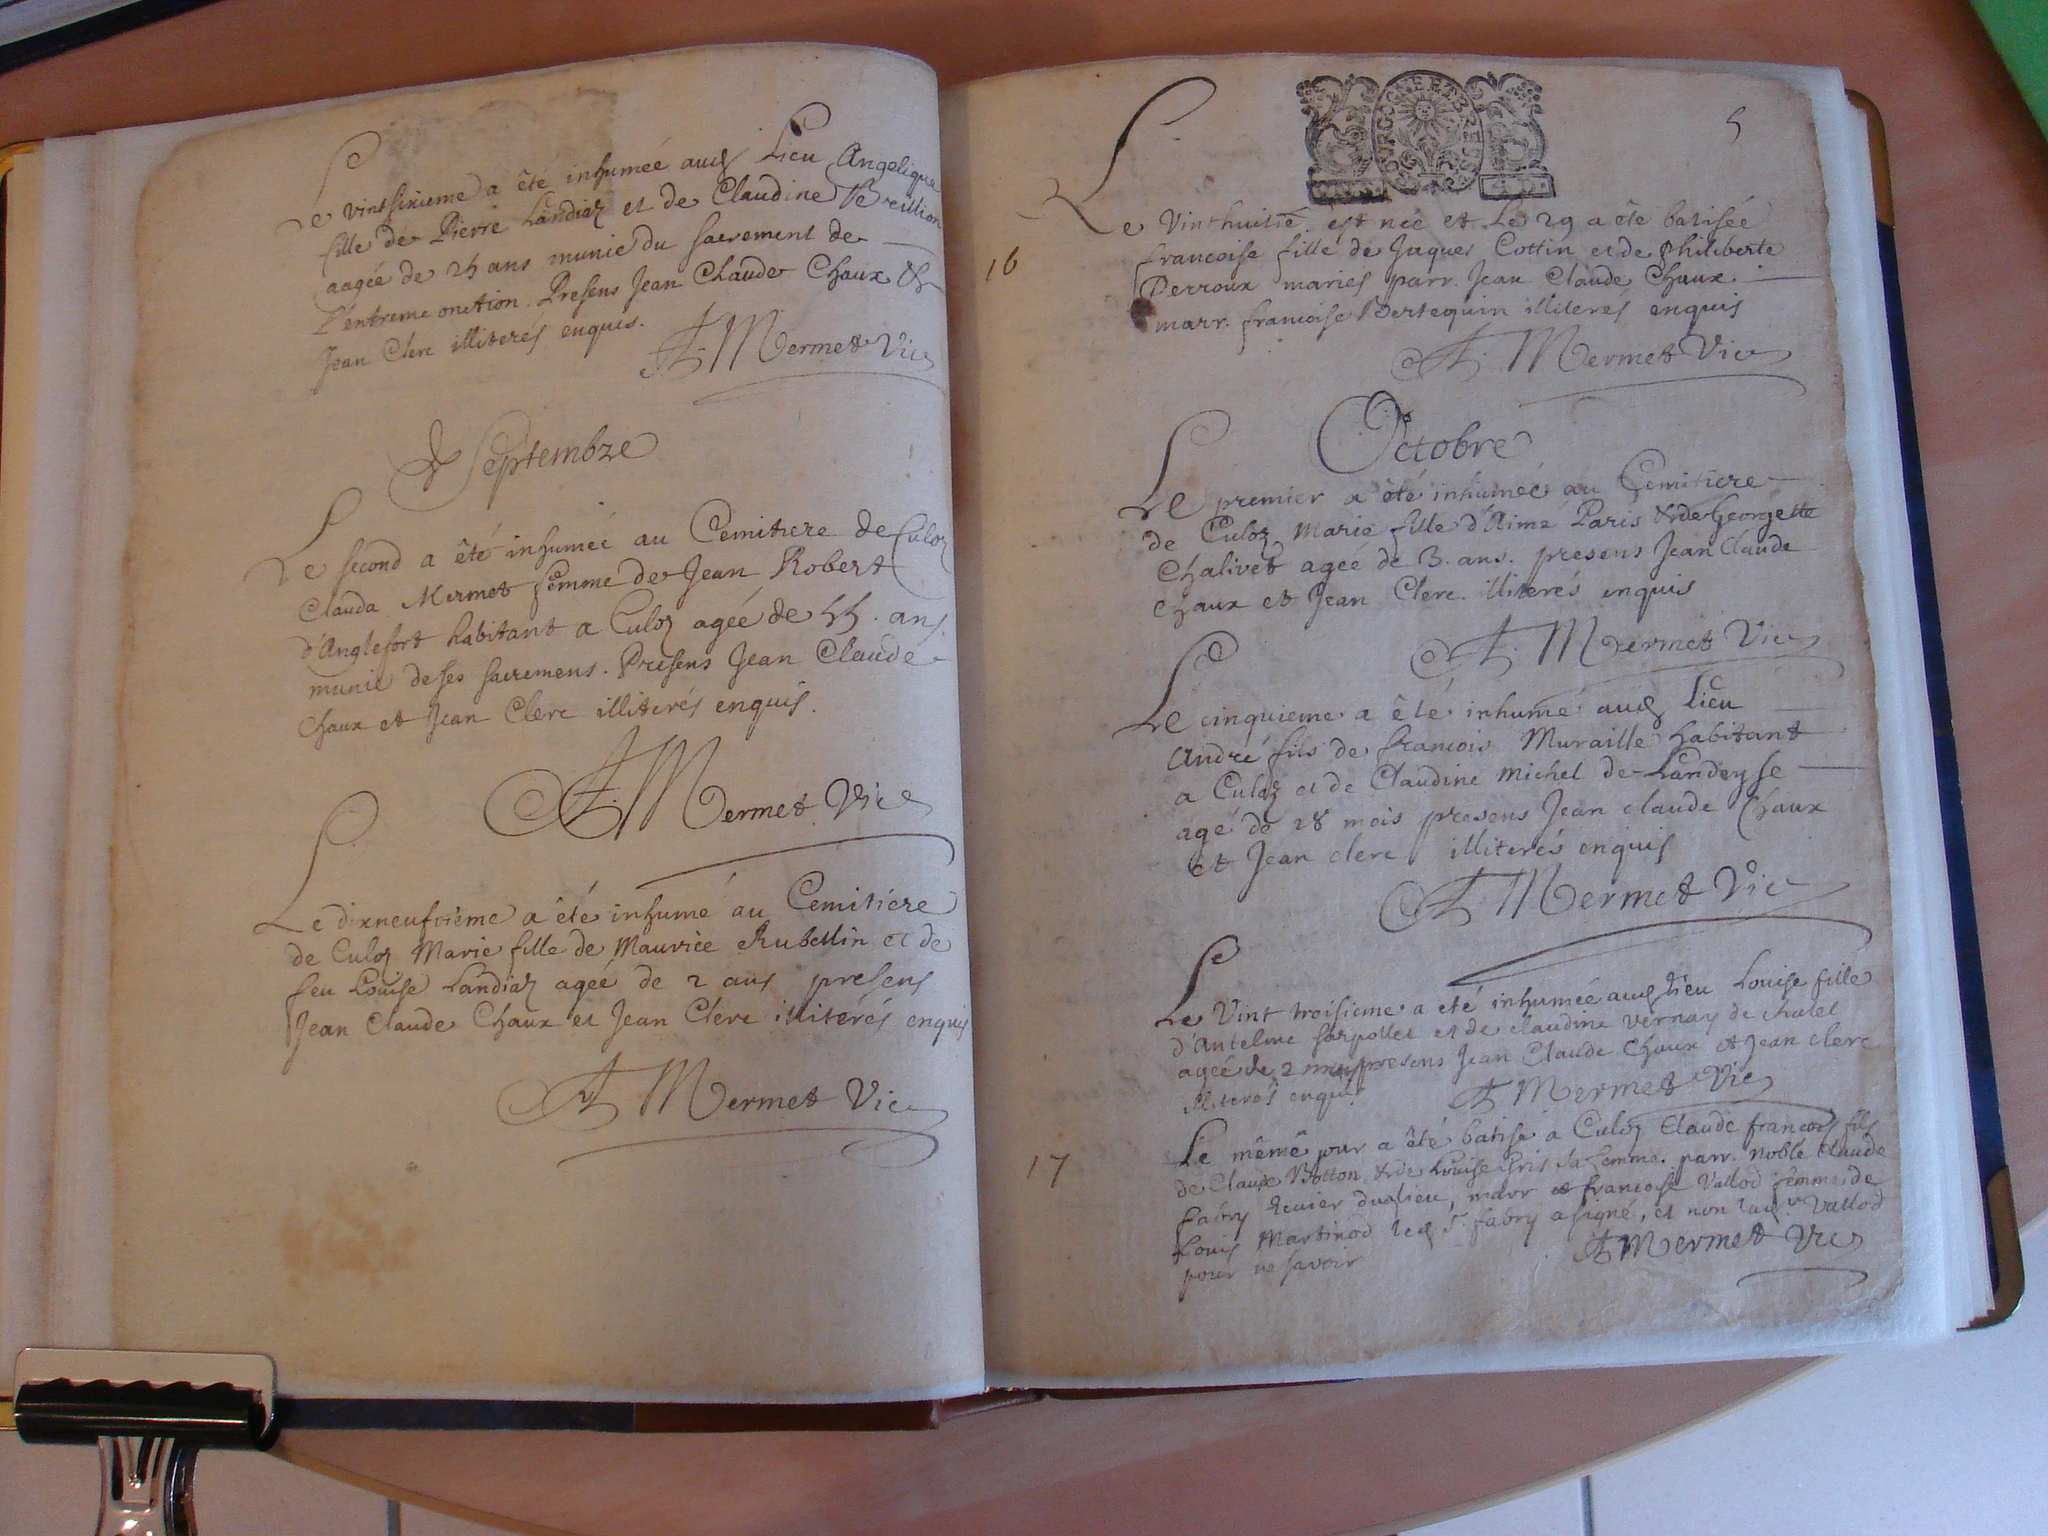 Le vintsixieme a êté inhumée aud Lieu Angelique
fille de Pierre Landiaz et de Claudine
aagée de 25 ans munie du sacrement de
L'entreme onction. Presens Jean Claude Chaux &
Jean Clerc illiterés enquis.
A. Mermet Vic
Septembre
Le second a êté inhumée au Cemitiere de Culoz
Clauda Mermet femme de Jean Robert
d'Anglefort habitant a Culoz agée de 55. ans
munie de ses sacremens. Presens Jean Claude
Chaux et Jean Clerc illiterés enquis.
A. Mermet Vic
Le dixneufvieme a êté inhumé au Cemitiere
de Culoz Marie fille de Maurice Rubellin et de
feu Louise Landiaz agée de 2 ans presens
Jean Claude Chaux et Jean Clerc illiterés enquis
A Mermet Vic
BOURGOGNE ET BRESSE
5
Le Vinthuitie. est née et Le 29 a êté batisée
16
francoise fille de Jaques Cottin et de philiberte
Perroux mariés parr. Jean Claude Chaux.
marr. francoise Bertequin illiterés enquis
A. Mermet Vic
Octobre
Le premier a êté inhumée au Cemitiere
de Culoz Marie fille d'Aimé Paris & de Georgette
Chalivet agée de 3. ans. presens Jean Claude
Chaux et Jean Clerc. illiterés enquis
A. Mermet Vic
Le cinquieme a êté inhumé aud Lieu
André fils de francois Muraille habitant
a Culoz et de Claudine Michel de Landeyse
agé de 28 mois presens Jean claude Chaux
et Jean clerc illiterés enquis
A Mermet Vic
Le Vint troisieme a eté inhumée aud lieu Louise fille
d'Antelme Sarpollet et de claudine Vernay de chatel
agée de 2 presens Jean Claude Chaux et Jean clerc
illiterés enquis
A Mermet Vic
17
Le même jour a êté batisé a Culoz Claude francois fils
de Claude Botton & de Louise Gris sa femme. parr. noble Claude
fabry Ecuier dud lieu, marr et francoise Vallod femme de
Louis Martinod led Sr. fabry a signé, et non lad. Vallod
pour ne savoir
A Mermet Vic